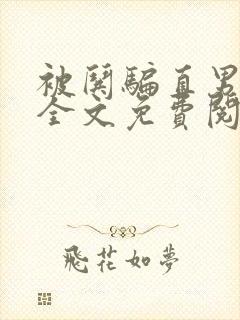 被闕騙直男
全文免費閱
飛花如夢